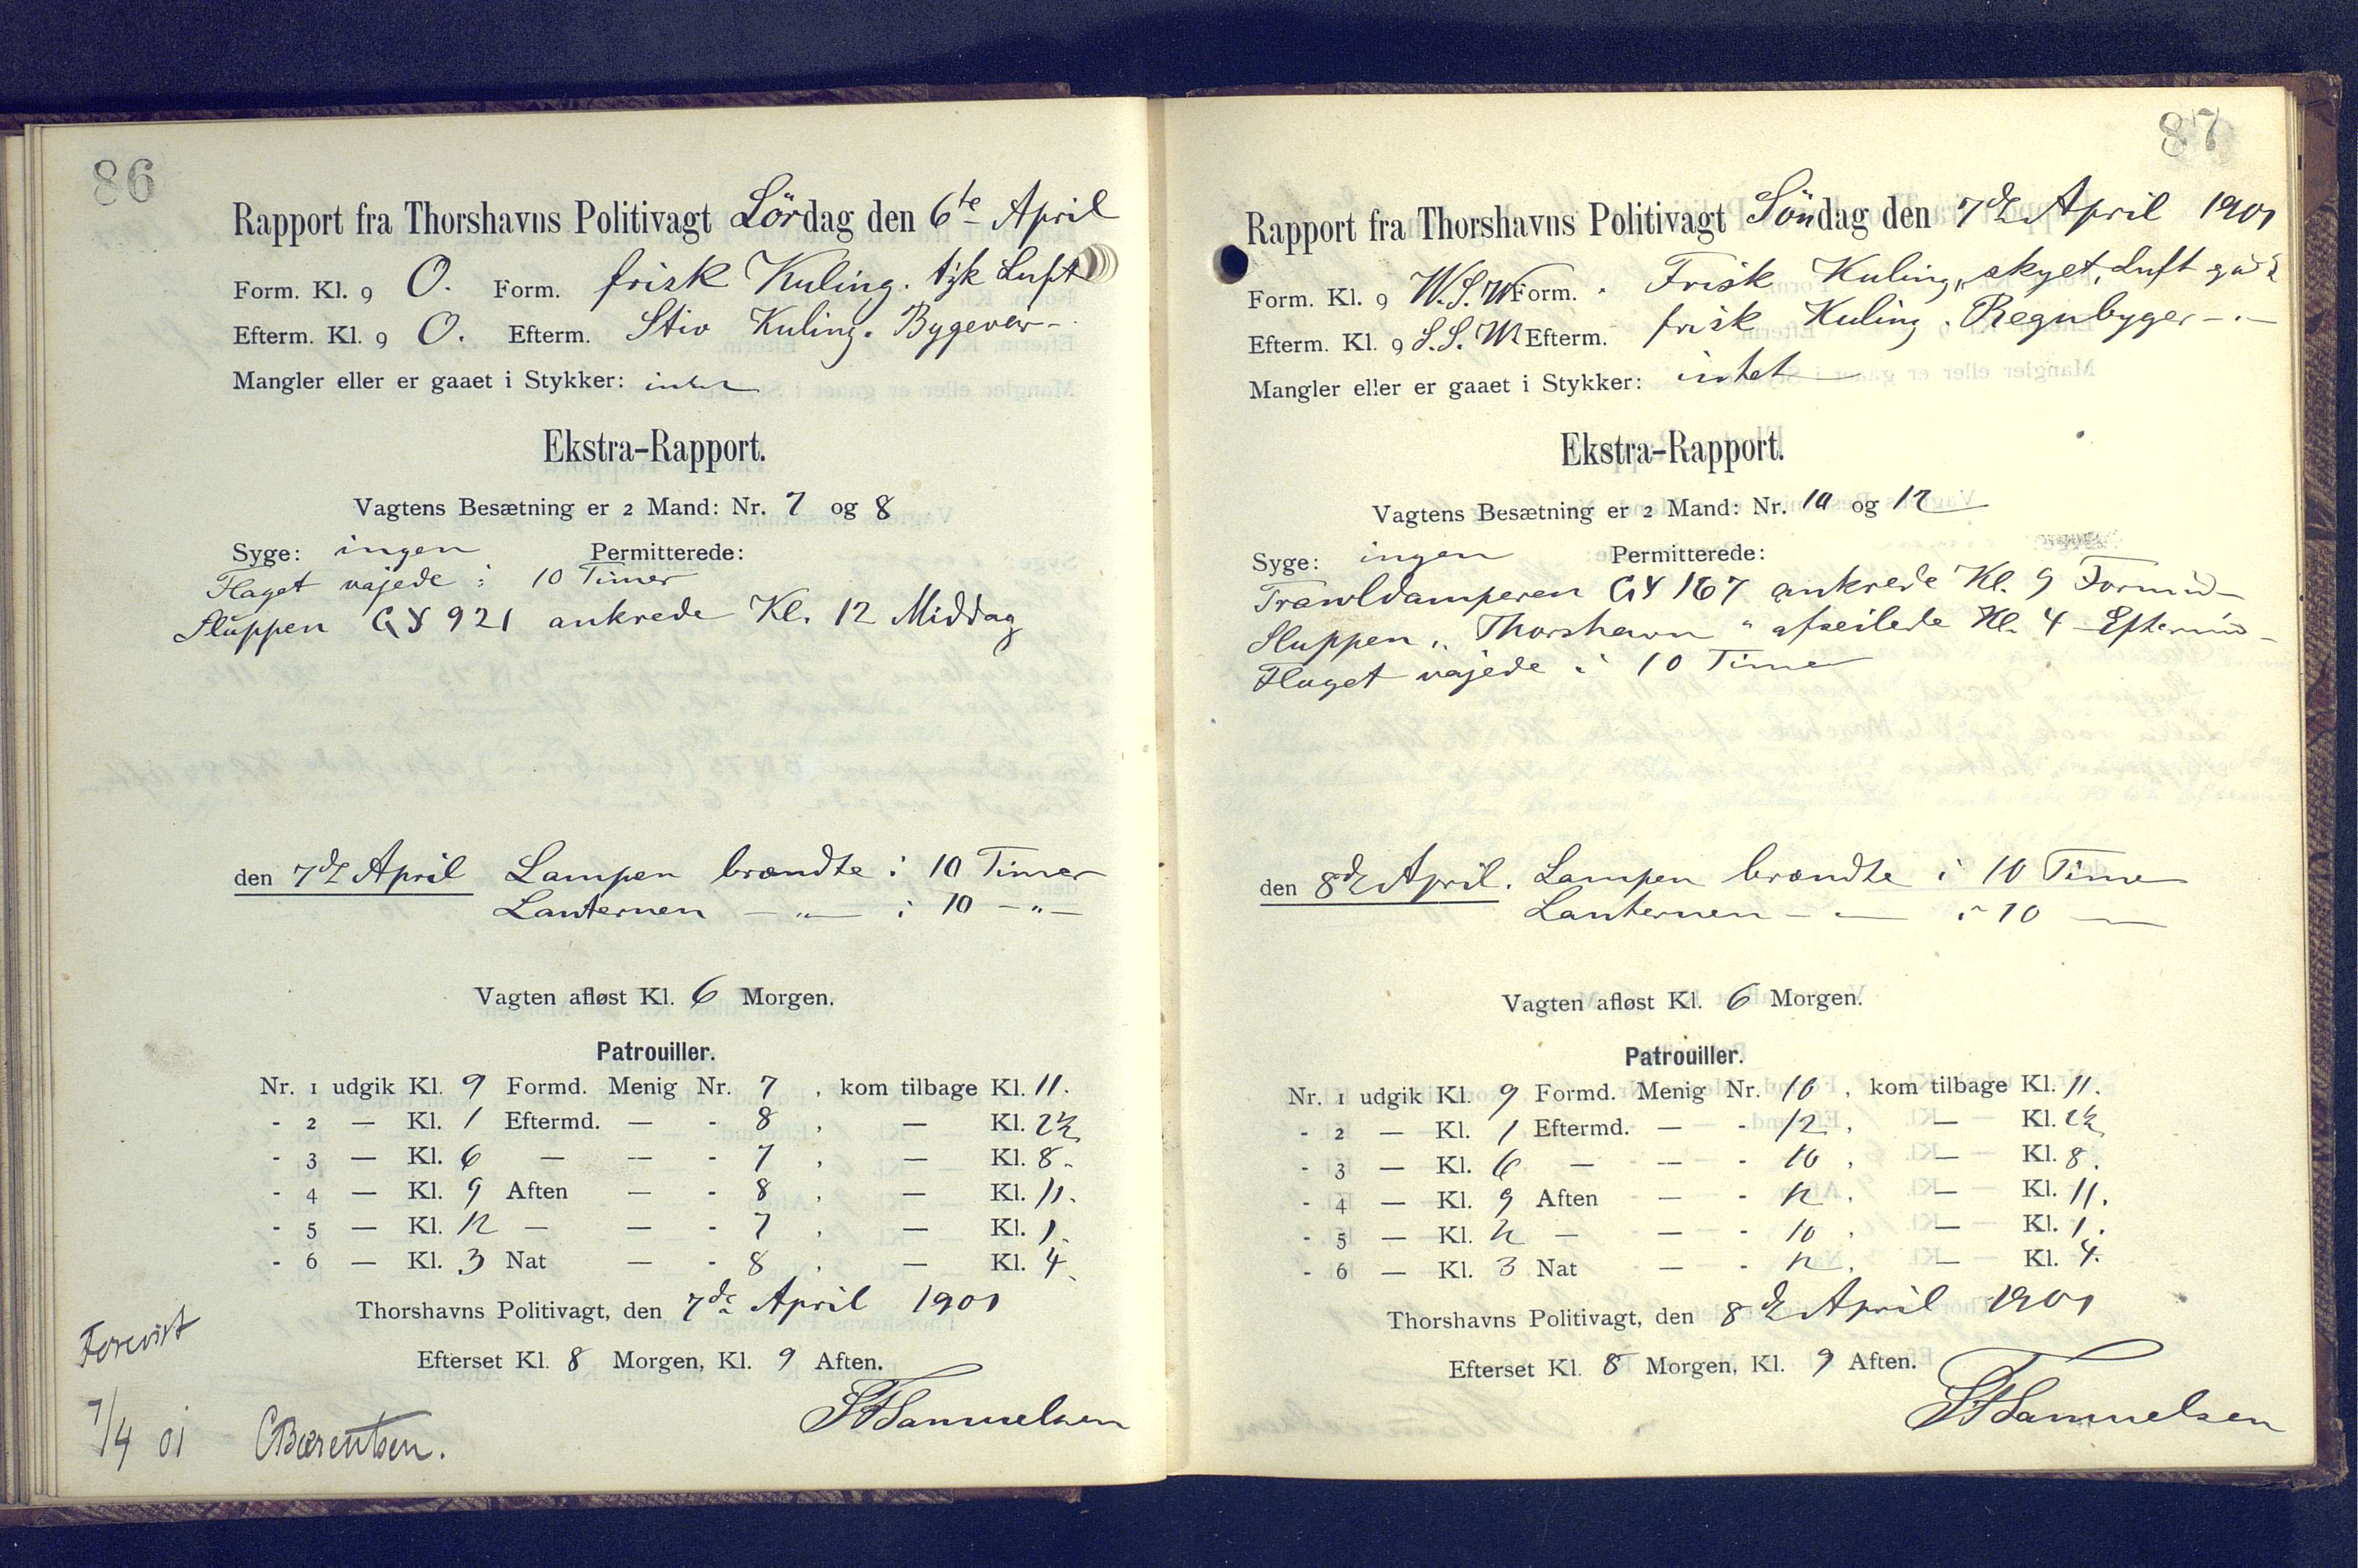 86
Rapport fra Thorshavns Politivagt Lördag den 6te April
Form. Kl. 9 O. Form. frisk Kuling. tyk Luft
Efterm. Kl. 9 O. Efterm. Stiv Kuling. Bygeveir -
Mangler eller er gaaet i Stykker: intet
Ekstra-Rapport.
Vagtens Besætning er 2 Mand: Nr. 7 og 8
Syge: ingen Permitterede:
Flaget vajede i 10 Timer
Sluppen GY 921 ankrede Kl. 12 Middag
den 7de April Lampen brændte i 10 Timer
Lanternen — „ — i 10 — „ —
Vagten afløst Kl. 6 Morgen.
Patrouiller.
Nr. 1 udgik Kl. 9 Formd. Menig Nr. 7 , kom tilbage Kl. 11.
- 2 — Kl. 1 Eftermd. — - 8 , — Kl. 2½
- 3 — Kl. 6 — — - 7 , — Kl. 8.
- 4 — Kl. 9 Aften — - 8 , — Kl. 11.
- 5 — Kl. 12 — — - 7 , — Kl. 1.
- 6 — Kl. 3 Nat — - 8 , — Kl. 4.
Thorshavns Politivagt, den 7de April 1901
Efterset Kl. 8 Morgen, Kl. 9 Aften.
Samuelsen
Forevist
7/4 01 CBærentsen.
87
Rapport fra Thorshavns Politivagt Söndag den 7de April 1901
Form. Kl. 9 W.S.W Form. Frisk Kuling, skyet, Luft
Efterm. Kl. 9 S.S.W. Efterm. frisk Kuling. Regnbyger - . -
Mangler eller er gaaet i Stykker: intet
Ekstra-Rapport.
Vagtens Besætning er 2 Mand: Nr. 10 og 12
Syge: ingen Permitterede:
Trawldamperen GY 167 ankrede Kl. 9 Formid-
Sluppen „Thorshavn" afseilede Kl. 4 Eftermid-
Flaget vajede i 10 Timer
den 8de April. Lampen brændte i 10 Timer
Lanternen - — i 10 —
Vagten afløst Kl. 6 Morgen.
Patrouiller.
Nr. 1 udgik Kl. 9 Formd. Menig Nr. 10 , kom tilbage Kl. 11.
- 2 — Kl. 1 Eftermd. — - 12 , — Kl. 2½
- 3 — Kl. 6 — — - 10 , — Kl. 8.
- 4 — Kl. 9 Aften — - 12 , — Kl. 11.
- 5 — Kl. 12 — — - 10 , — Kl. 1.
- 6 — Kl. 3 Nat — - 12 , — Kl. 4.
Thorshavns Politivagt, den 8de April 1901
Efterset Kl. 8 Morgen, Kl. 9 Aften.
Samuelsen